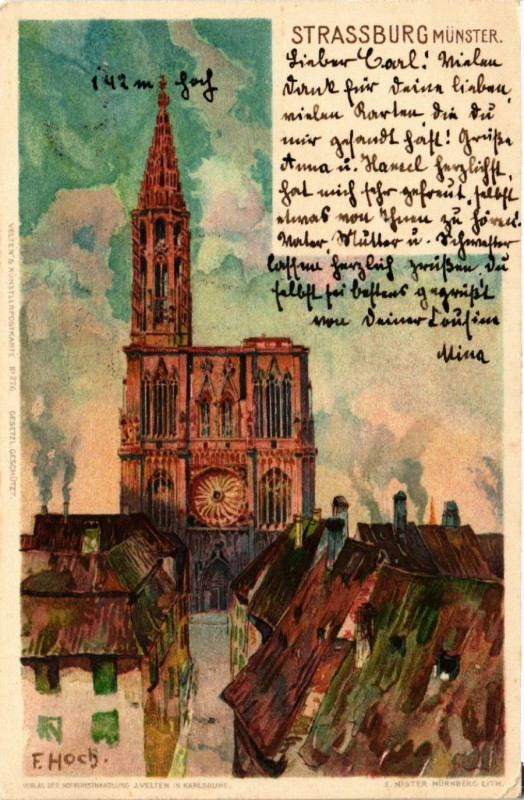 STRASSBURG MÜNSTER.
142 m hoch
Lieber Carl! Vielen
Dank für deine lieben,
vielen Karten, die du
mir gesandt hast! Grüße
Anna u. herzlichst,
hat mich sehr gefreut, selbst
etwas von Ihnen zu hören.
Vater, Mutter u. Schwester
lassen herzlich grüßen, du
selbst sei bestens gegrüßt
von Deiner Cousine
Mina
VELTEN'S KÜNSTLERPOSTKARTE Nº 276 GESETZL. GESCHÜTZT.
F. HOCH.
VERLAG DER HOFKUNSTHANDLUNG J. VELTEN IN KARLSRUHE.
E. NISTER NÜRNBERG LITH.